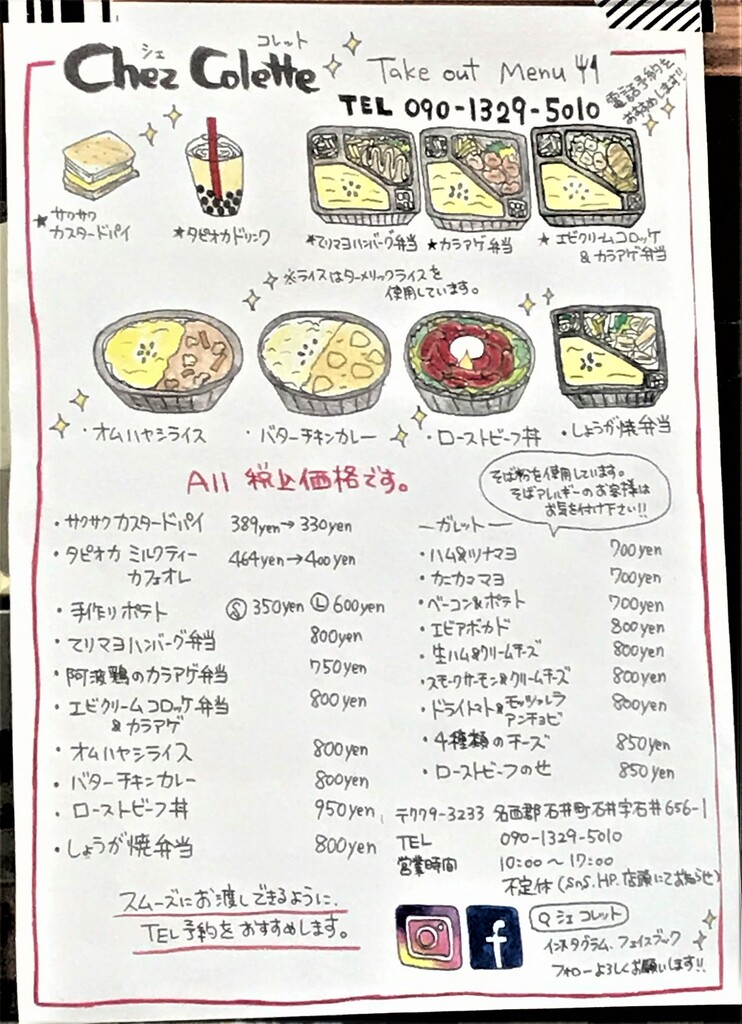 シェ コレット
Chez Colette Take out Menu
電話予約を
おすすめします!!
TEL 090-1329-5010
★サクサク
カスタードパイ
★タピオカドリンク
★テリマヨハンバーグ弁当
★カラアゲ弁当
★エビクリームコロッケ
&カラアゲ弁当
※ライスはターメリックライスを
使用しています。
・オムハヤシライス
・バターチキンカレー
・ローストビーフ丼
・しょうが焼弁当
All 税込価格です。
そば粉を使用しています。
そばアレルギーのお客様は
お気を付け下さい!!
・サクサクカスタードパイ 389yen→330yen
・タピオカ ミルクティー 464yen→400yen
カフェオレ
・手作りポテト Ⓢ350yen Ⓛ600yen
・てりマヨハンバーグ弁当 800yen
・阿波鶏のカラアゲ弁当 750yen
・エビクリームコロッケ弁当 800yen
&カラアゲ
・オムハヤシライス 800yen
・バターチキンカレー 800yen
・ローストビーフ丼 950yen
・しょうが焼弁当 800yen
ーガレットー
・ハム&ツナマヨ 700yen
・カニカママヨ 700yen
・ベーコン&ポテト 700yen
・エビアボカド 800yen
・生ハム&クリームチーズ 800yen
・スモークサーモン&クリームチーズ 800yen
・ドライトマト&モッツァレラ 800yen
アンチョビ
・4種類のチーズ 850yen
・ローストビーフのせ 850yen
〒779-3233 名西郡石井町石井字石井656-1
TEL 090-1329-5010
営業時間 10:00〜17:00
不定休(SNS.HP.店頭にてお知らせ)
スムーズにお渡しできるように、
TEL予約をおすすめします。
f
Q シェ コレット
インスタグラム、フェイスブック
フォローよろしくお願いします!!